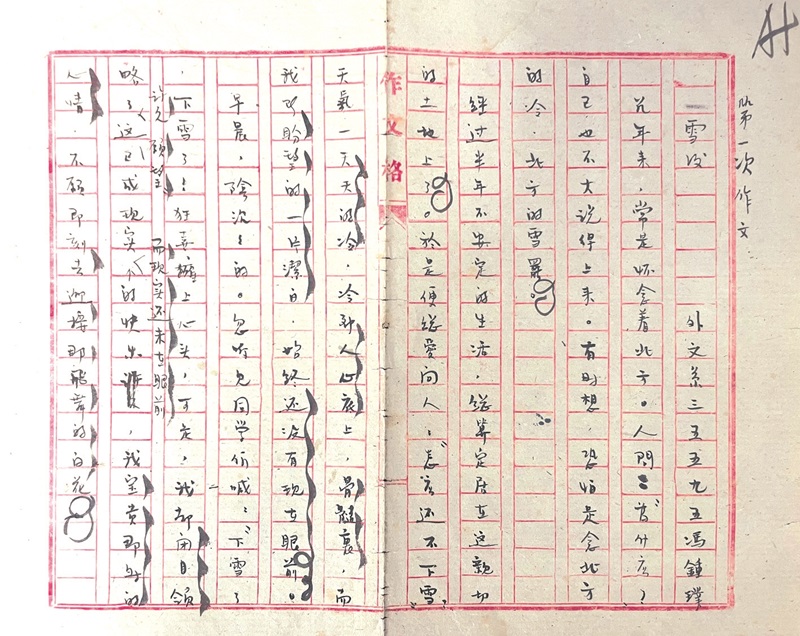 A+
第一次作文
雪後 外文系三五五九五馮鍾璞
几年来，常是怀念着北方。人問：“為什么？”
自己也不大说得上来。有时想，恐怕是念北方
的冷，北方的雪罷。
經过半年不安定的生活，縂算定居在这親切
的土地上了。於是便縂爱问人：“怎么还不下雪”
天氣一天天的冷，冷到人心底上，骨髓裏，而
我所盼望的一片潔白，始终还没有现在眼前。
早晨，陰沉沉的。忽听见同学们喊：“下雪了
，下雪了！狂喜擁上心头，可是，我却闭目领
願望 而现实还未在眼前
略了这已成现实的快乐，我宝贵那的
心情，不願即刻去迎接那飛着的白花。
作文格